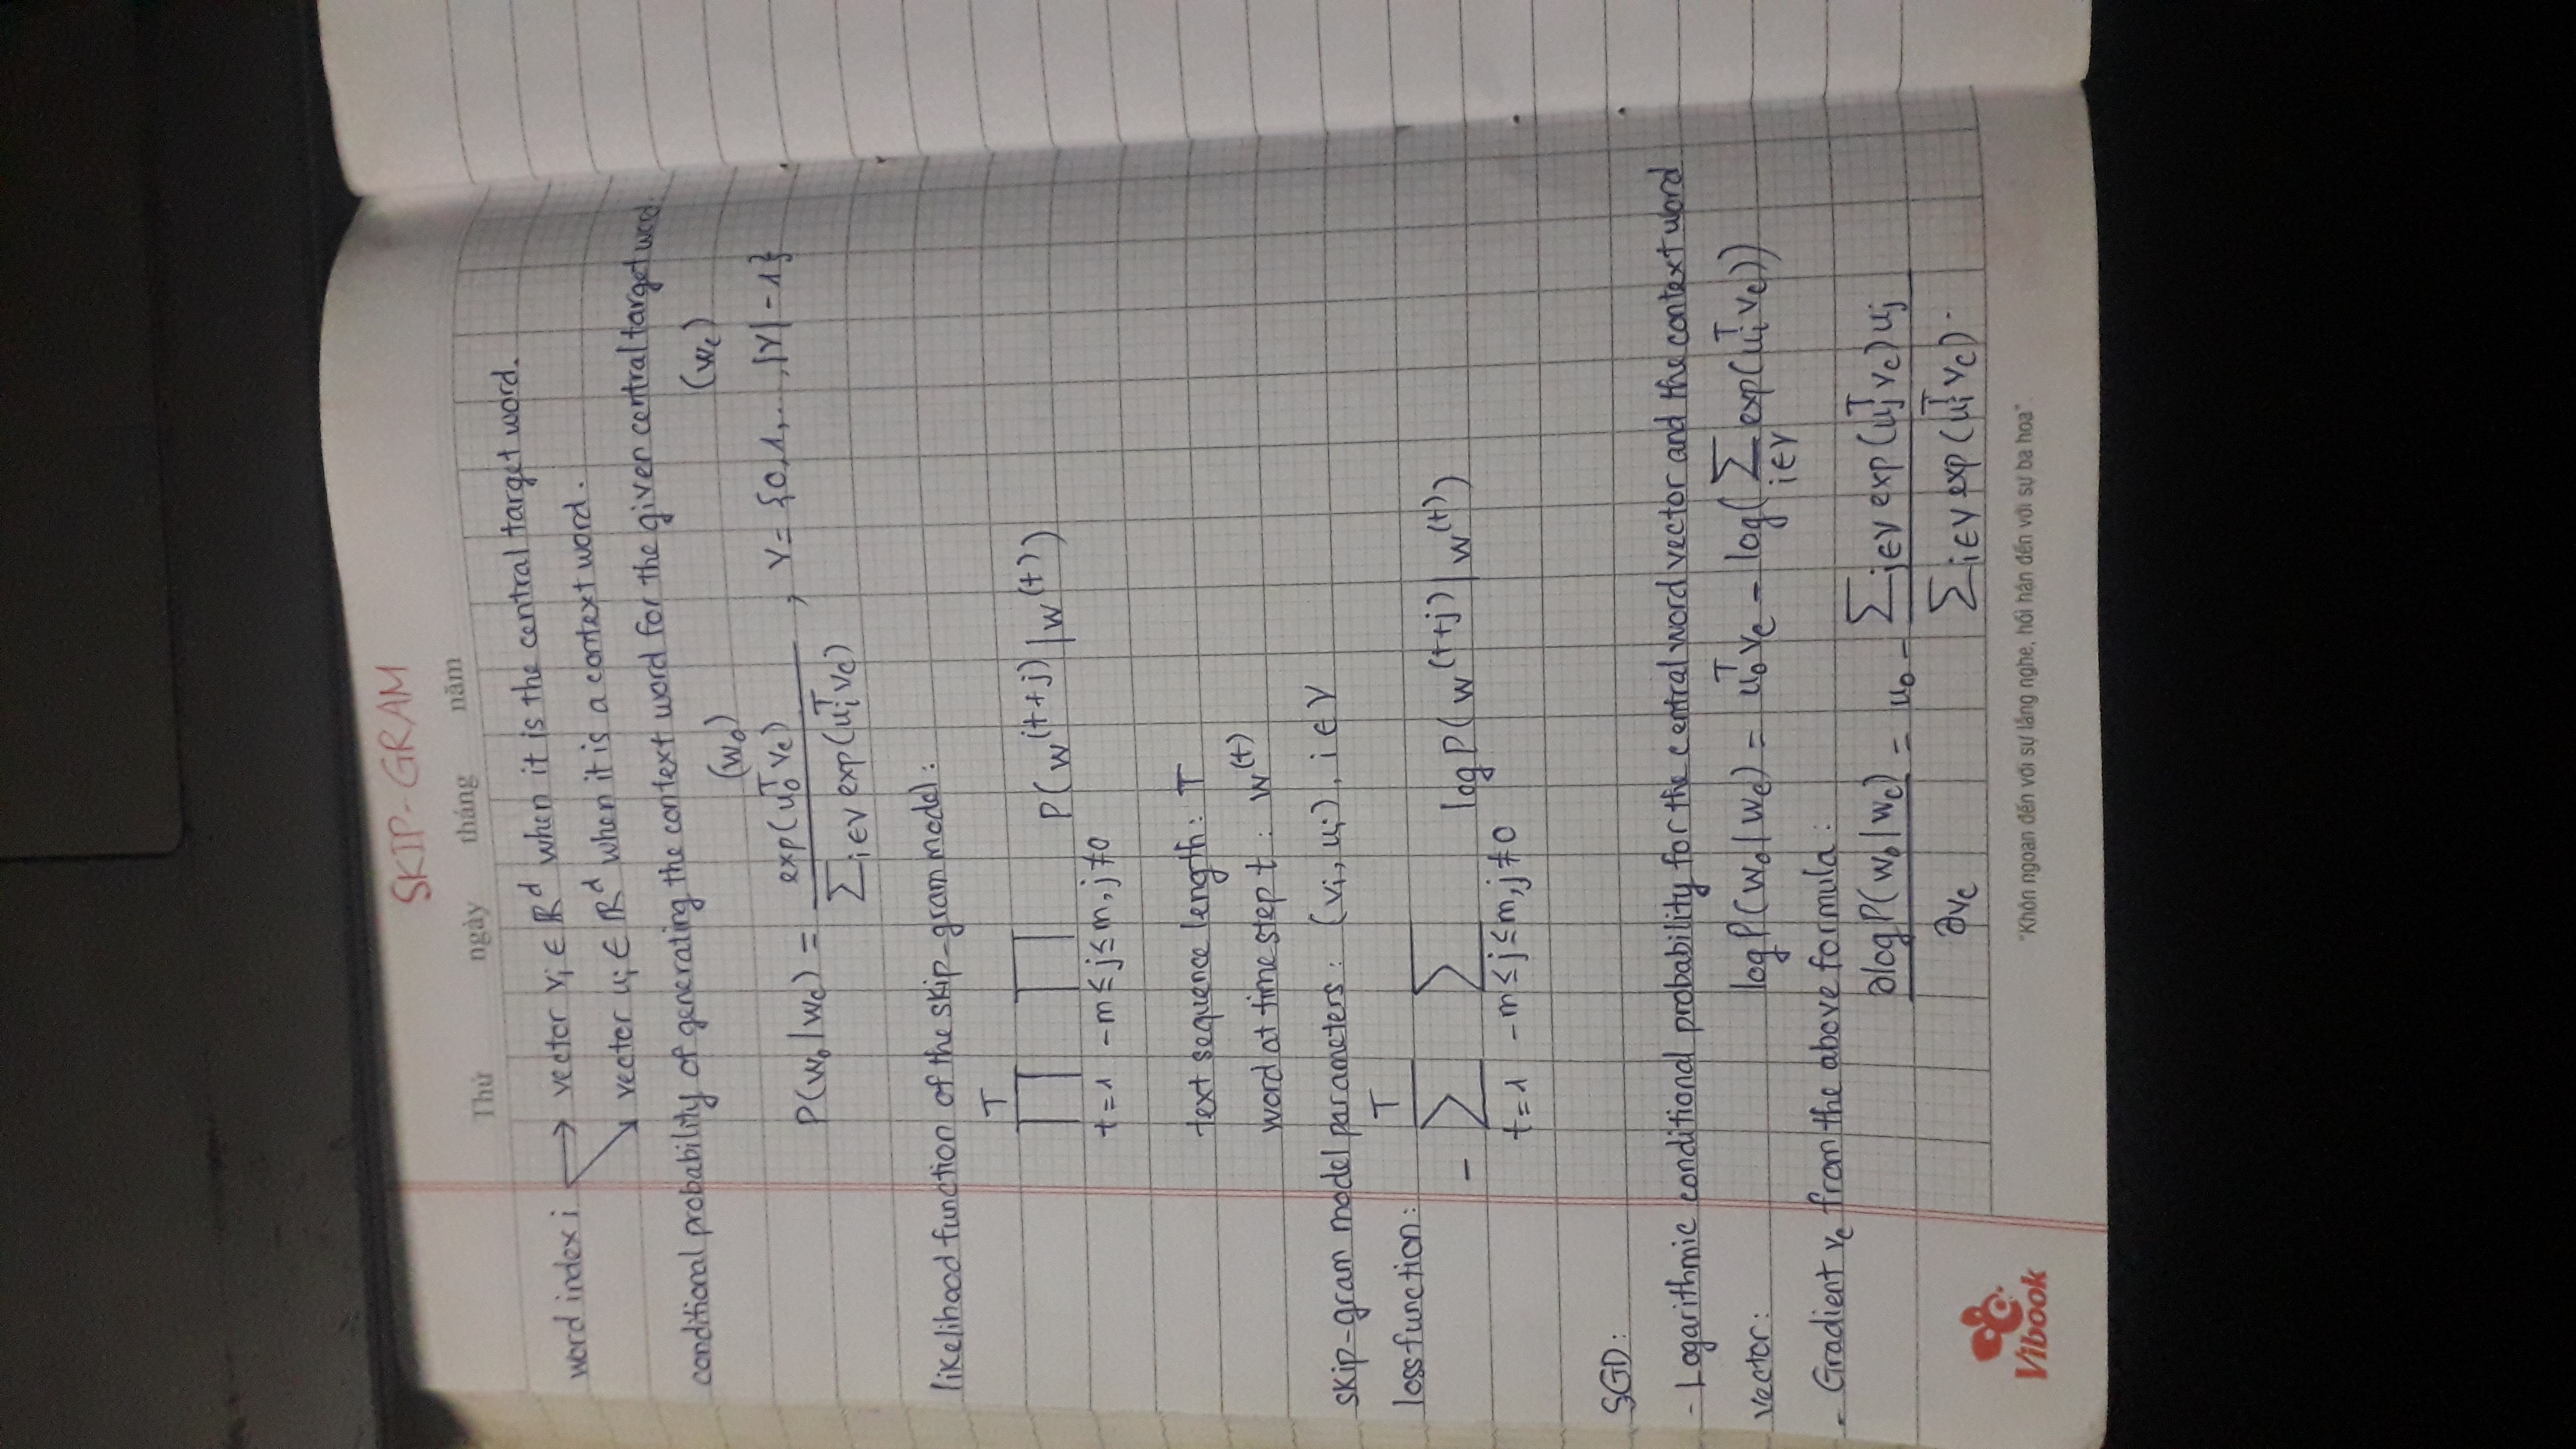 SKIP-GRAM
Thứ ngày tháng năm
word index i → vector vᵢ ∈ ℝᵈ when it is the central target word.
↘ vector uᵢ ∈ ℝᵈ when it is a context word.
conditional probability of generating the context word for the given central target word.
(w₀) (w_c)
P(w₀|w_c) = exp(u₀ᵀ v_c) / Σ_{i∈V} exp(uᵢᵀ v_c) , V = {0,1,...,|V|-1}
likelihood function of the skip-gram model:
∏_{t=1}^{T} ∏_{-m≤j≤m, j≠0} P(w^(t+j) | w^(t))
text sequence length: T
word at time step t: w^(t)
skip-gram model parameters: (vᵢ, uᵢ), i ∈ V
loss function:
- Σ_{t=1}^{T} Σ_{-m≤j≤m, j≠0} log P(w^(t+j) | w^(t))
SGD:
- Logarithmic conditional probability for the central word vector and the context word
vector: log P(w₀|w_c) = u₀ᵀ v_c - log(Σ_{i∈V} exp(uᵢᵀ v_c))
- Gradient v_c from the above formula:
∂log P(w₀|w_c) / ∂v_c = u₀ - Σ_{j∈V} exp(uⱼᵀ v_c) uⱼ / Σ_{i∈V} exp(uᵢᵀ v_c).
Vibook
"Khôn ngoan đến với sự lắng nghe, hối hận đến với sự ba hoa".